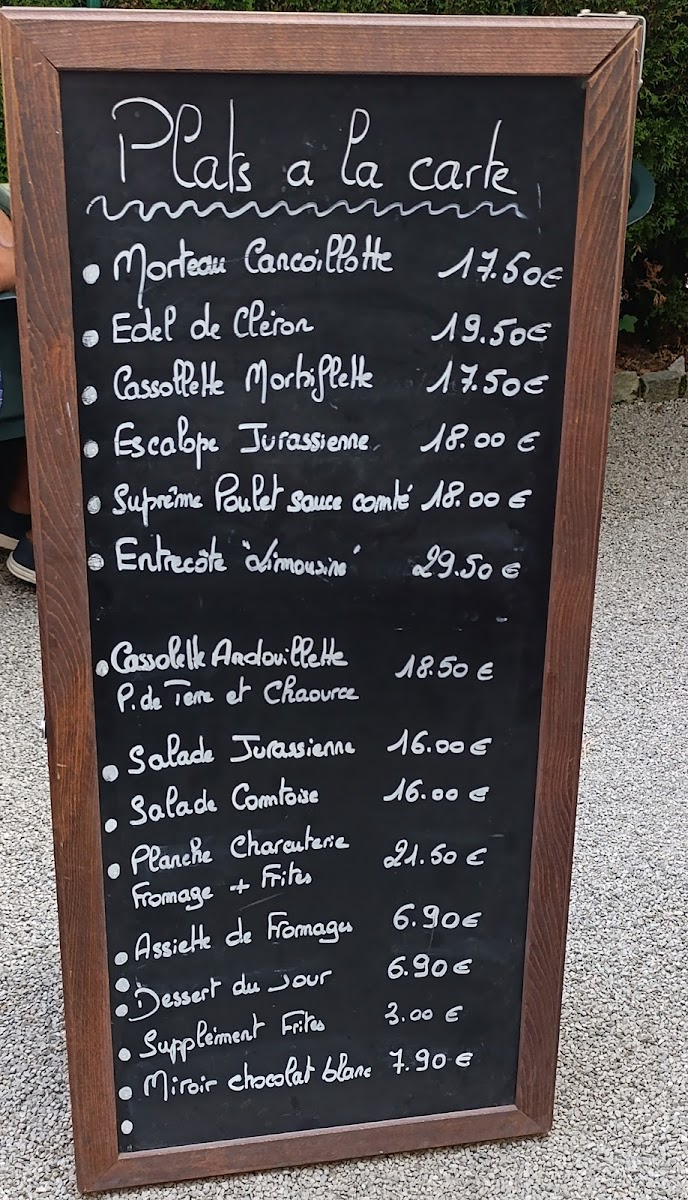 Plats a la carte
• Morteau Cancoillotte 17.50€
• Edel de Cléron 19.50€
• Cassollette Morbiflette 17.50€
• Escalope Jurassienne 18.00 €
• Suprême Poulet sauce comté 18.00 €
• Entrecôte "Limousine" 29.50 €
• Cassolette Andouillette 18.50 €
P. de Terre et Chaource
• Salade Jurassienne 16.00 €
• Salade Comtoise 16.00 €
• Planche Charcuterie 21.50 €
Fromage + Frites
• Assiette de Fromages 6.90€
• Dessert du Jour 6.90€
• Supplément Frites 3.00 €
• Miroir chocolat blanc 7.90 €